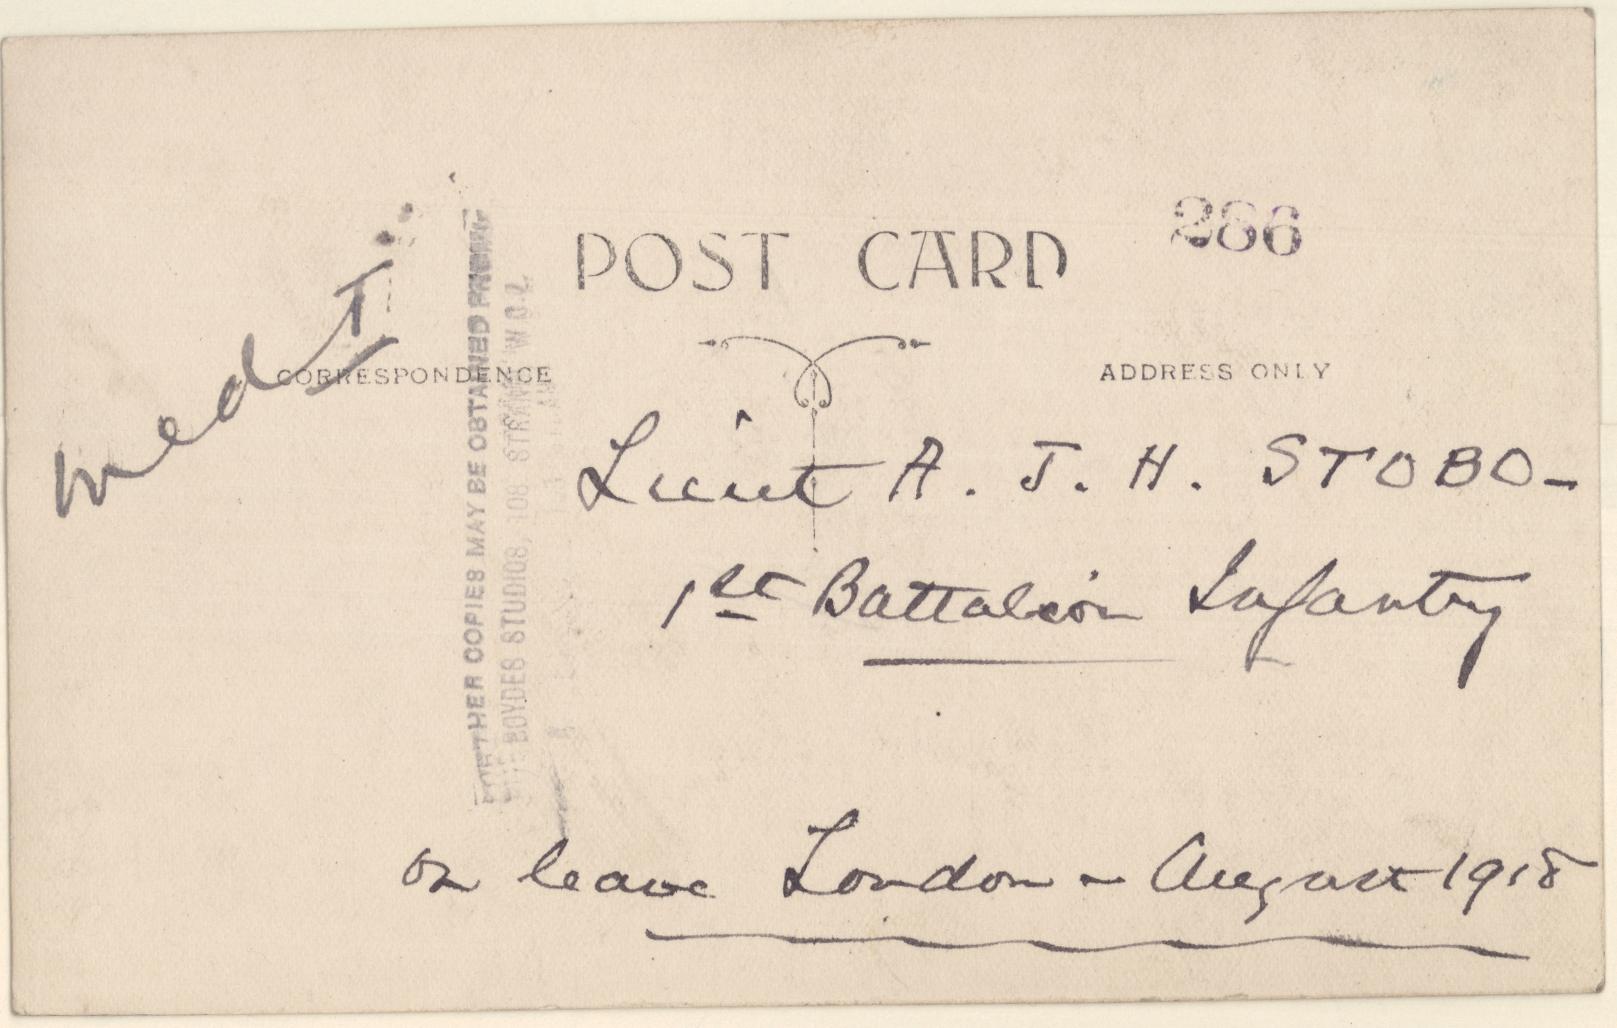 POST CARD
286
CORRESPONDENCE
ADDRESS ONLY
Med
FURTHER COPIES MAY BE OBTAINED FROM
THE BOYDES STUDIOS, 108 STRAND W.C.2.
Lieut A. J. H. STOBO-
1st Battalion Infantry
on leave London - August 1918